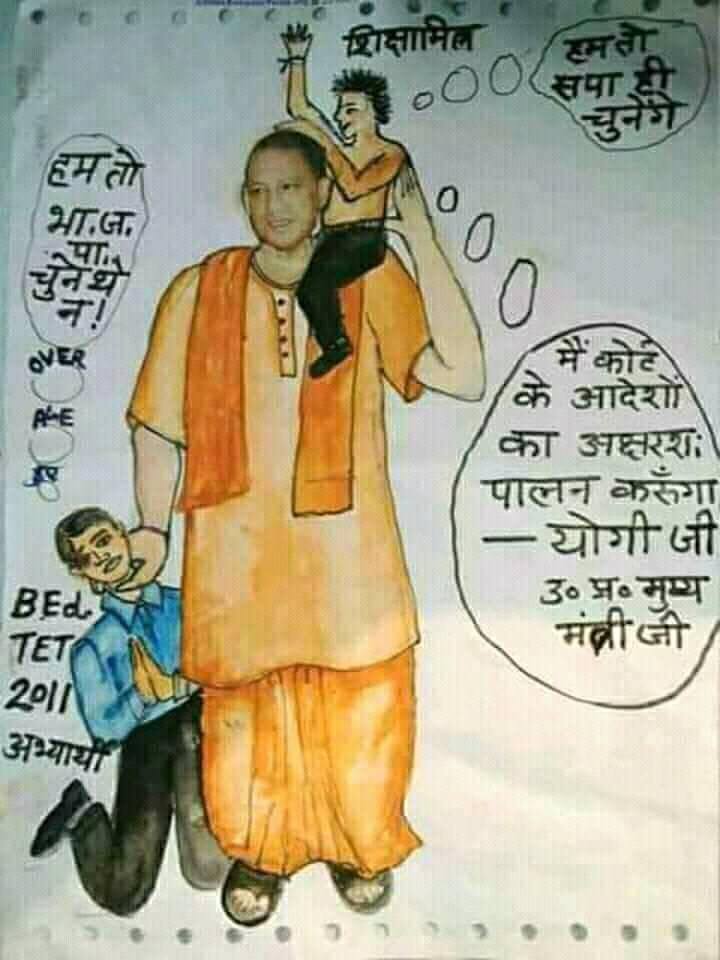 शिक्षामित्र
हम तो
सपा ही
चुनेंगे
हम तो
भा.ज.
पा.
चुने थे
न!
OVER
AGE
मैं कोर्ट
के आदेशों
का अक्षरशः
पालन करूँगा
— योगी जी
उ० प्र० मुख्य
मंत्री जी
BEd.
TET
2011
अभ्यार्थी